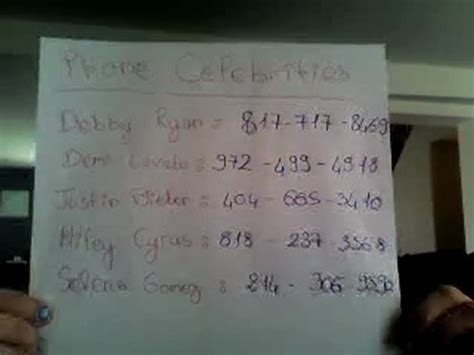 Phone Celebrities
Debby Ryan = 817-717-8469
Demi Lovato = 972-499-4918
Justin Bieber = 404-665-3410
Miley Cyrus = 818-237-3568
Selena Gomez : 214-306